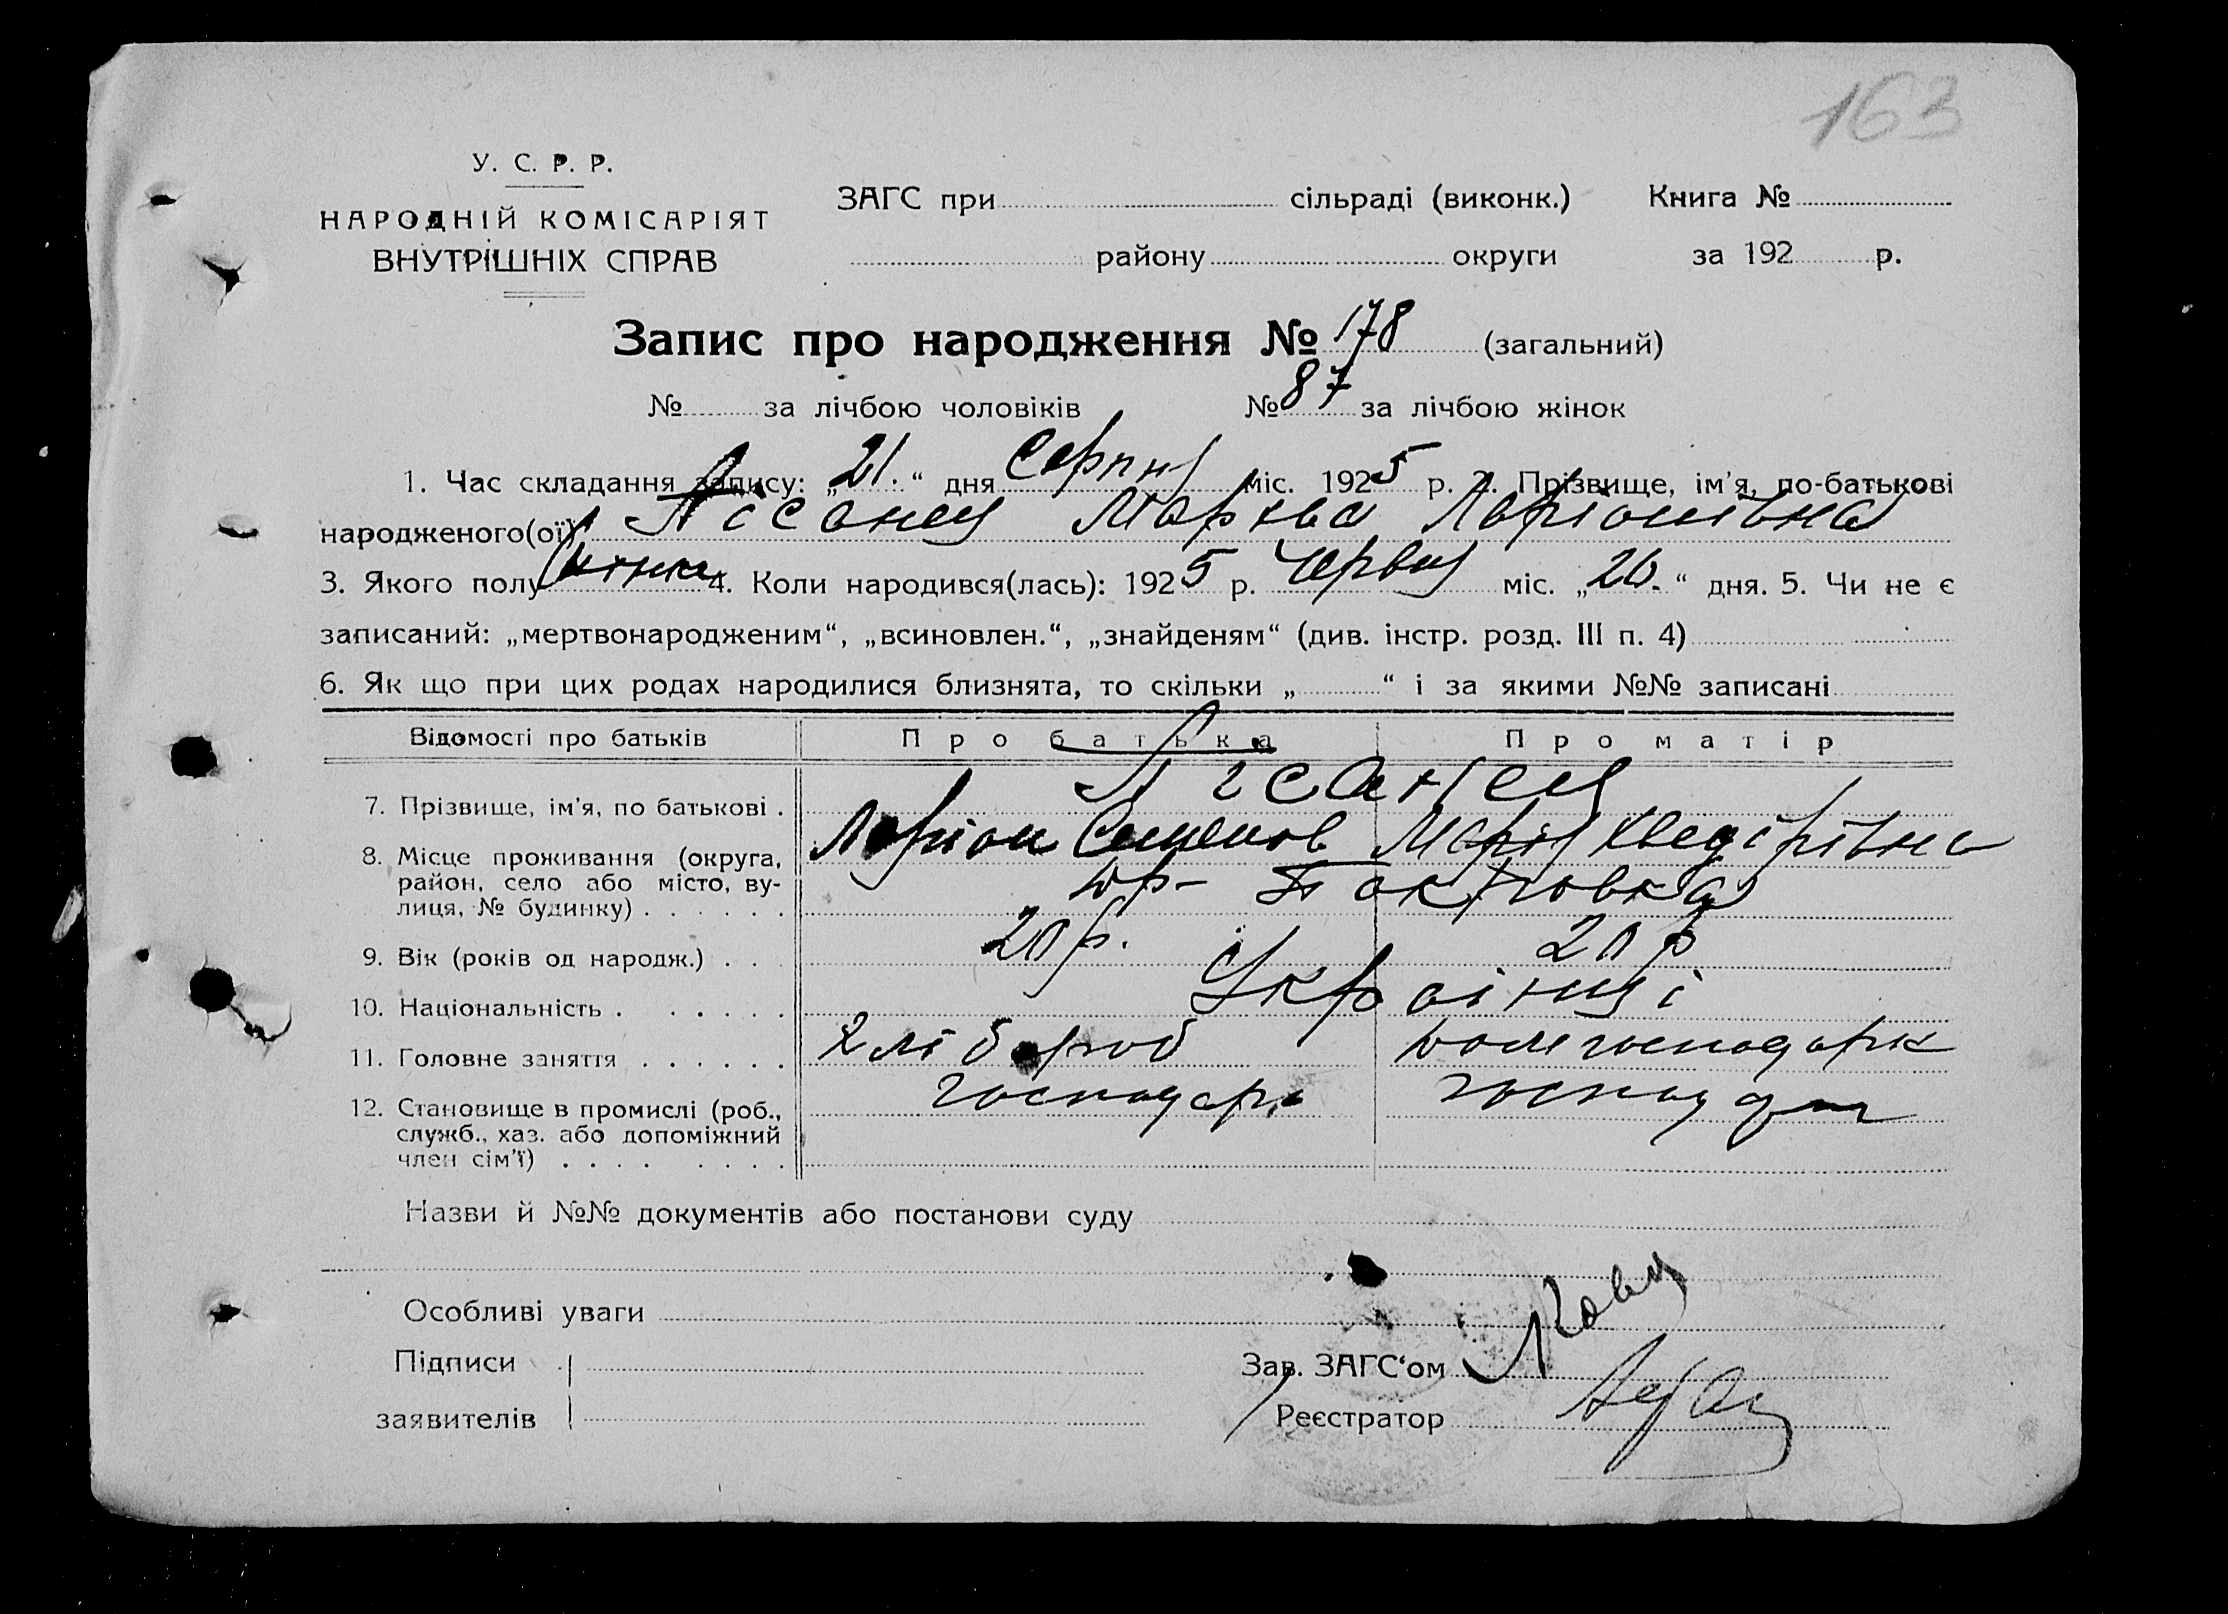 163
У. С. Р. Р.
НАРОДНІЙ КОМІСАРІЯТ
ВНУТРІШНІХ СПРАВ
ЗАГС при сільраді (виконк.) Книга №
району округи за 192 р.
Запис про народження № 178 (загальний)
№ за лічбою чоловіків № 87 за лічбою жінок
1. Час складання запису: „21.“ дня Серпня міс. 1925 р. 2. Прізвище, ім'я, по-батькові
народженого(ої) Пісанец Марква Ларіонівна
3. Якого полу жінка 4. Коли народився(лась): 1925 р. Червня міс. „20.“ дня. 5. Чи не є
записаний: „мертвонародженим“, „всиновлен.“, „знайденям“ (див. інстр. розд. III п. 4)
6. Як що при цих родах народилися близнята, то скільки „ “ і за якими №№ записані
Відомості про батьків Про батька Про матір
Пісанец
7. Прізвище, ім'я, по батькові .
Ларіон Семенов Марія Хведорівна
8. Місце проживання (округа,
район, село або місто, ву-
лиця, № будинку) . . . . . .
9. Вік (років од народж.) . . .
10. Національність . . . . . . Українці
11. Головне заняття . . . . . . Хлібороб домогосподарк
12. Становище в промислі (роб.,
служб., хаз. або допоміжний
член сім'ї) . . . . . . . .
господарь
Назви й №№ документів або постанови суду
Особливі уваги
Підписи
заявителів
Зав. ЗАГС'ом
Реєстратор